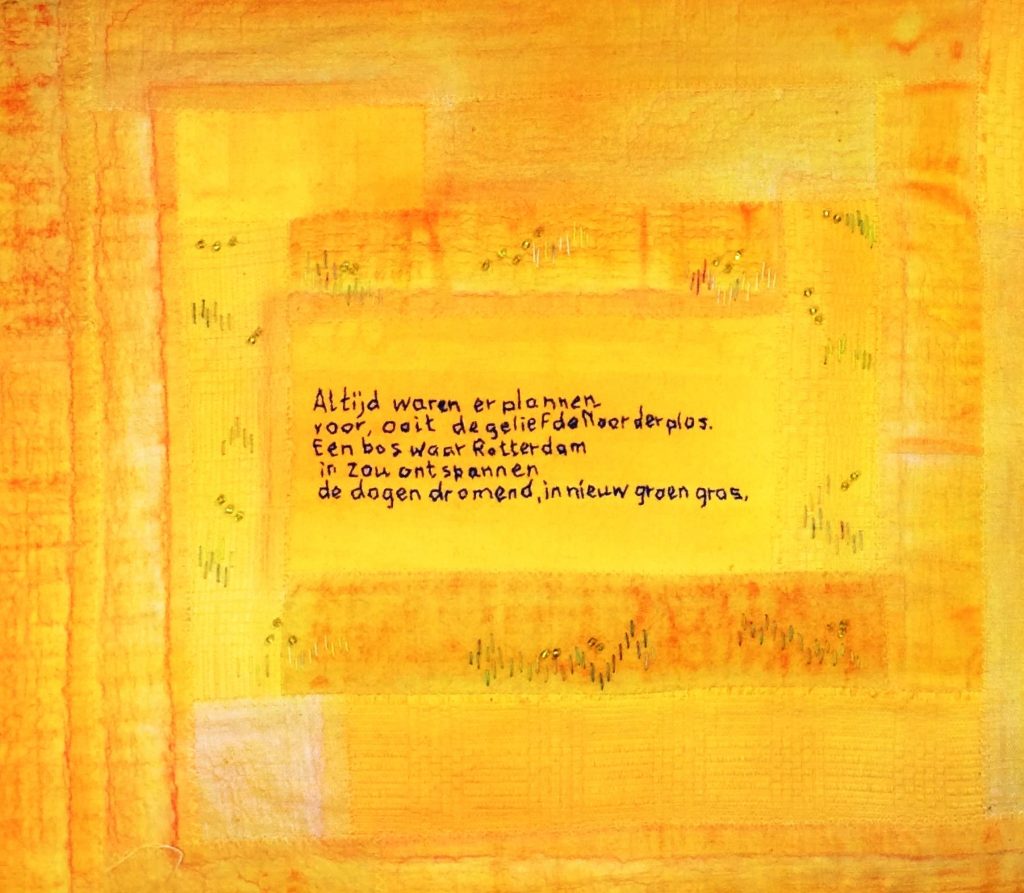 Altijd waren er plannen
voor, ooit de geliefde Noorderplas.
Een bos waar Rotterdam
in zou ontspannen
de dagen dromend, in nieuw groen gras.